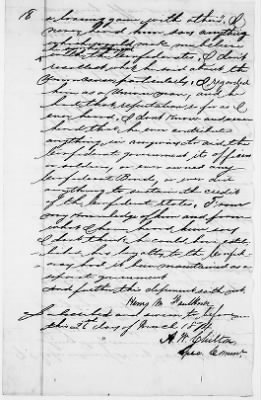 8
a losing game with others. I
never heard him say anything
make me believe
in the Confederates, I don't
recollect what he said about the
particularly, I regarded
him as a Union man, and he
had that reputation so far as I
ever heard, I don't know and never
heard that he ever contributed
anything, or any money to aid the
Confederate government its officers
or ever owned any
Confederate Bonds, or ever did
anything to sustain the credit
of the Confederate States, I never
any knowledge of him and from
what I have heard him say
I don't think he could have
his loyalty to the Confed-
eracy had it been maintained as a
separate government
And further this deponent saith not.
Henry M Faulkner
Subscribed and sworn to before me
this 21st day of March 1874
A. W. Chilton
Spec. Commr.